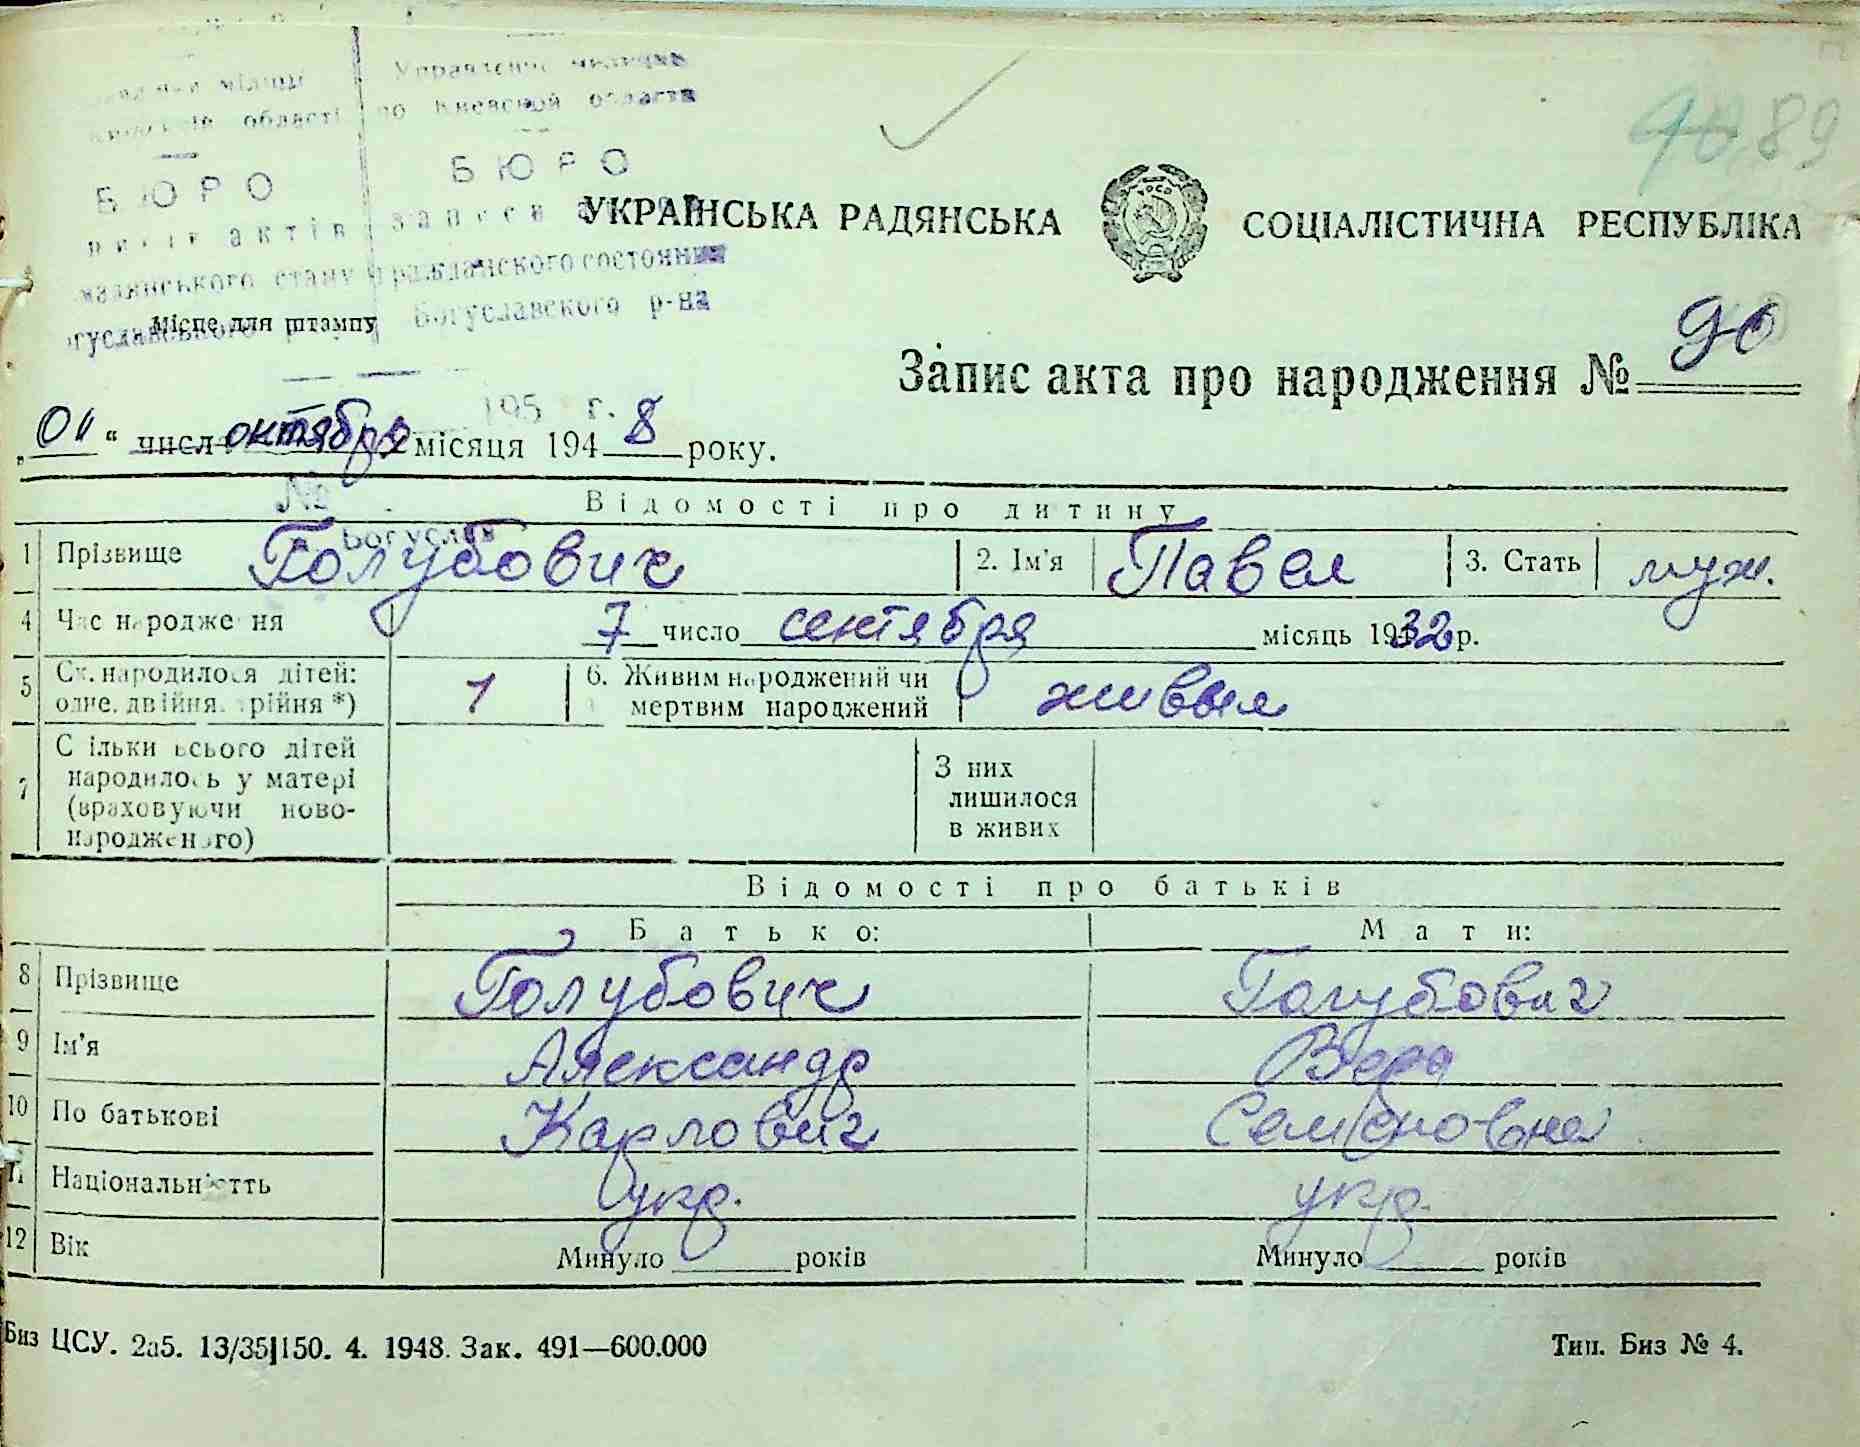 Управление милиции
области | по Киевской области
БЮРО БЮРО
актів записи
УКРАЇНСЬКА РАДЯНСЬКА СОЦІАЛІСТИЧНА РЕСПУБЛІКА
стану гражданского состояния
Богуславского р-на
Місце для штампу
89
Запис акта про народження № 90
195 г.
"01" числа октября місяця 1948 року.
№
Богуслав
Відомості про дитину
1 Прізвище Голубович 2. Ім'я Павел 3. Стать муж.
4 Час народження 7 число сентября місяць 1932 р.
5 Ск. народилося дітей: одне, двійня, трійня *) 1 6. Живим народжений чи мертвим народжений живым
7 Скільки всього дітей народилось у матері (враховуючи новонародженого) З них лишилося в живих
Відомості про батьків
Батько: Мати:
8 Прізвище Голубович Голубович
9 Ім'я Александр Вера
10 По батькові Карлович Семёновна
11 Національністть укр. укр.
12 Вік Минуло ____ років Минуло ____ років
Биз ЦСУ. 2а5. 13/35|150. 4. 1948. Зак. 491—600.000 Тип. Биз № 4.